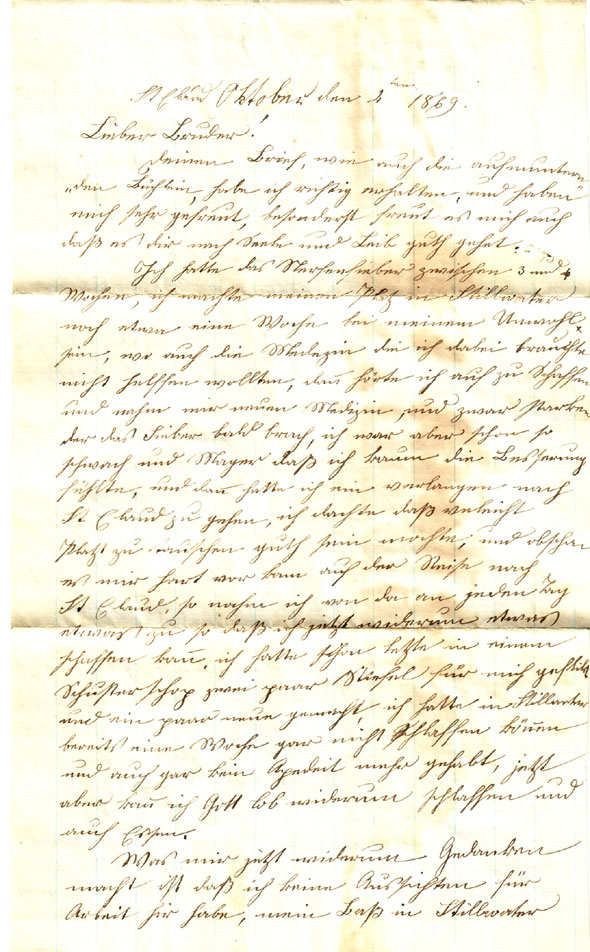 St Claud Oktober den 4ten 1869.
Lieber Bruder!
Deinen Brief, wie auch die aufmuntern-
„den Büchlein, habe ich richtig erhalten, und haben
mich sehr gefreut, besonderst freut es mich auch
daß es dir nach Seele und Leib guth gehet.
Ich hatte das Nerfenfieber zwischen 3 und 4
Wochen, ich machte meinen Platz in Stillwater
noch etwa eine Woche bei meinem Unwohl
sein, wo auch die Medezin die ich dabei brauchte
nicht helffen wollten, dann hörte ich auf zu Schaffen
und nahm mir neuen Medizin und zwar starken
der das Fieber bald brach, ich war aber schon so
schwach und Mager daß ich kaum die Besserung
fühlte, und dann hatte ich ein verlangen nach
St Claud zu gehen, ich dachte daß vieleicht
Platzt zu tauschen guth sein mochte, und obschon
es mir hart vor kam auf der Reise nach
St Claud, so nahm ich von da an jeden Tag
etwas zu so daß ich jetzt widerum etwas
schaffen kann, ich hatte schon letzte in einem
Schusterschop zwei paar Stiefel für mich geflikt
und ein paar neue gemacht, ich hatte in Stillwater
bereits eine Woche gar nicht schlaffen können
und auch gar kein Apedeit mehr gehabt, jetzt
aber kann ich Gott lob widerum schlaffen und
auch Essen.
Was mir jetzt widerum Gedanken
macht ist daß ich keine Aussichten für
Arbeit hir habe, mein Baß in Stillwater